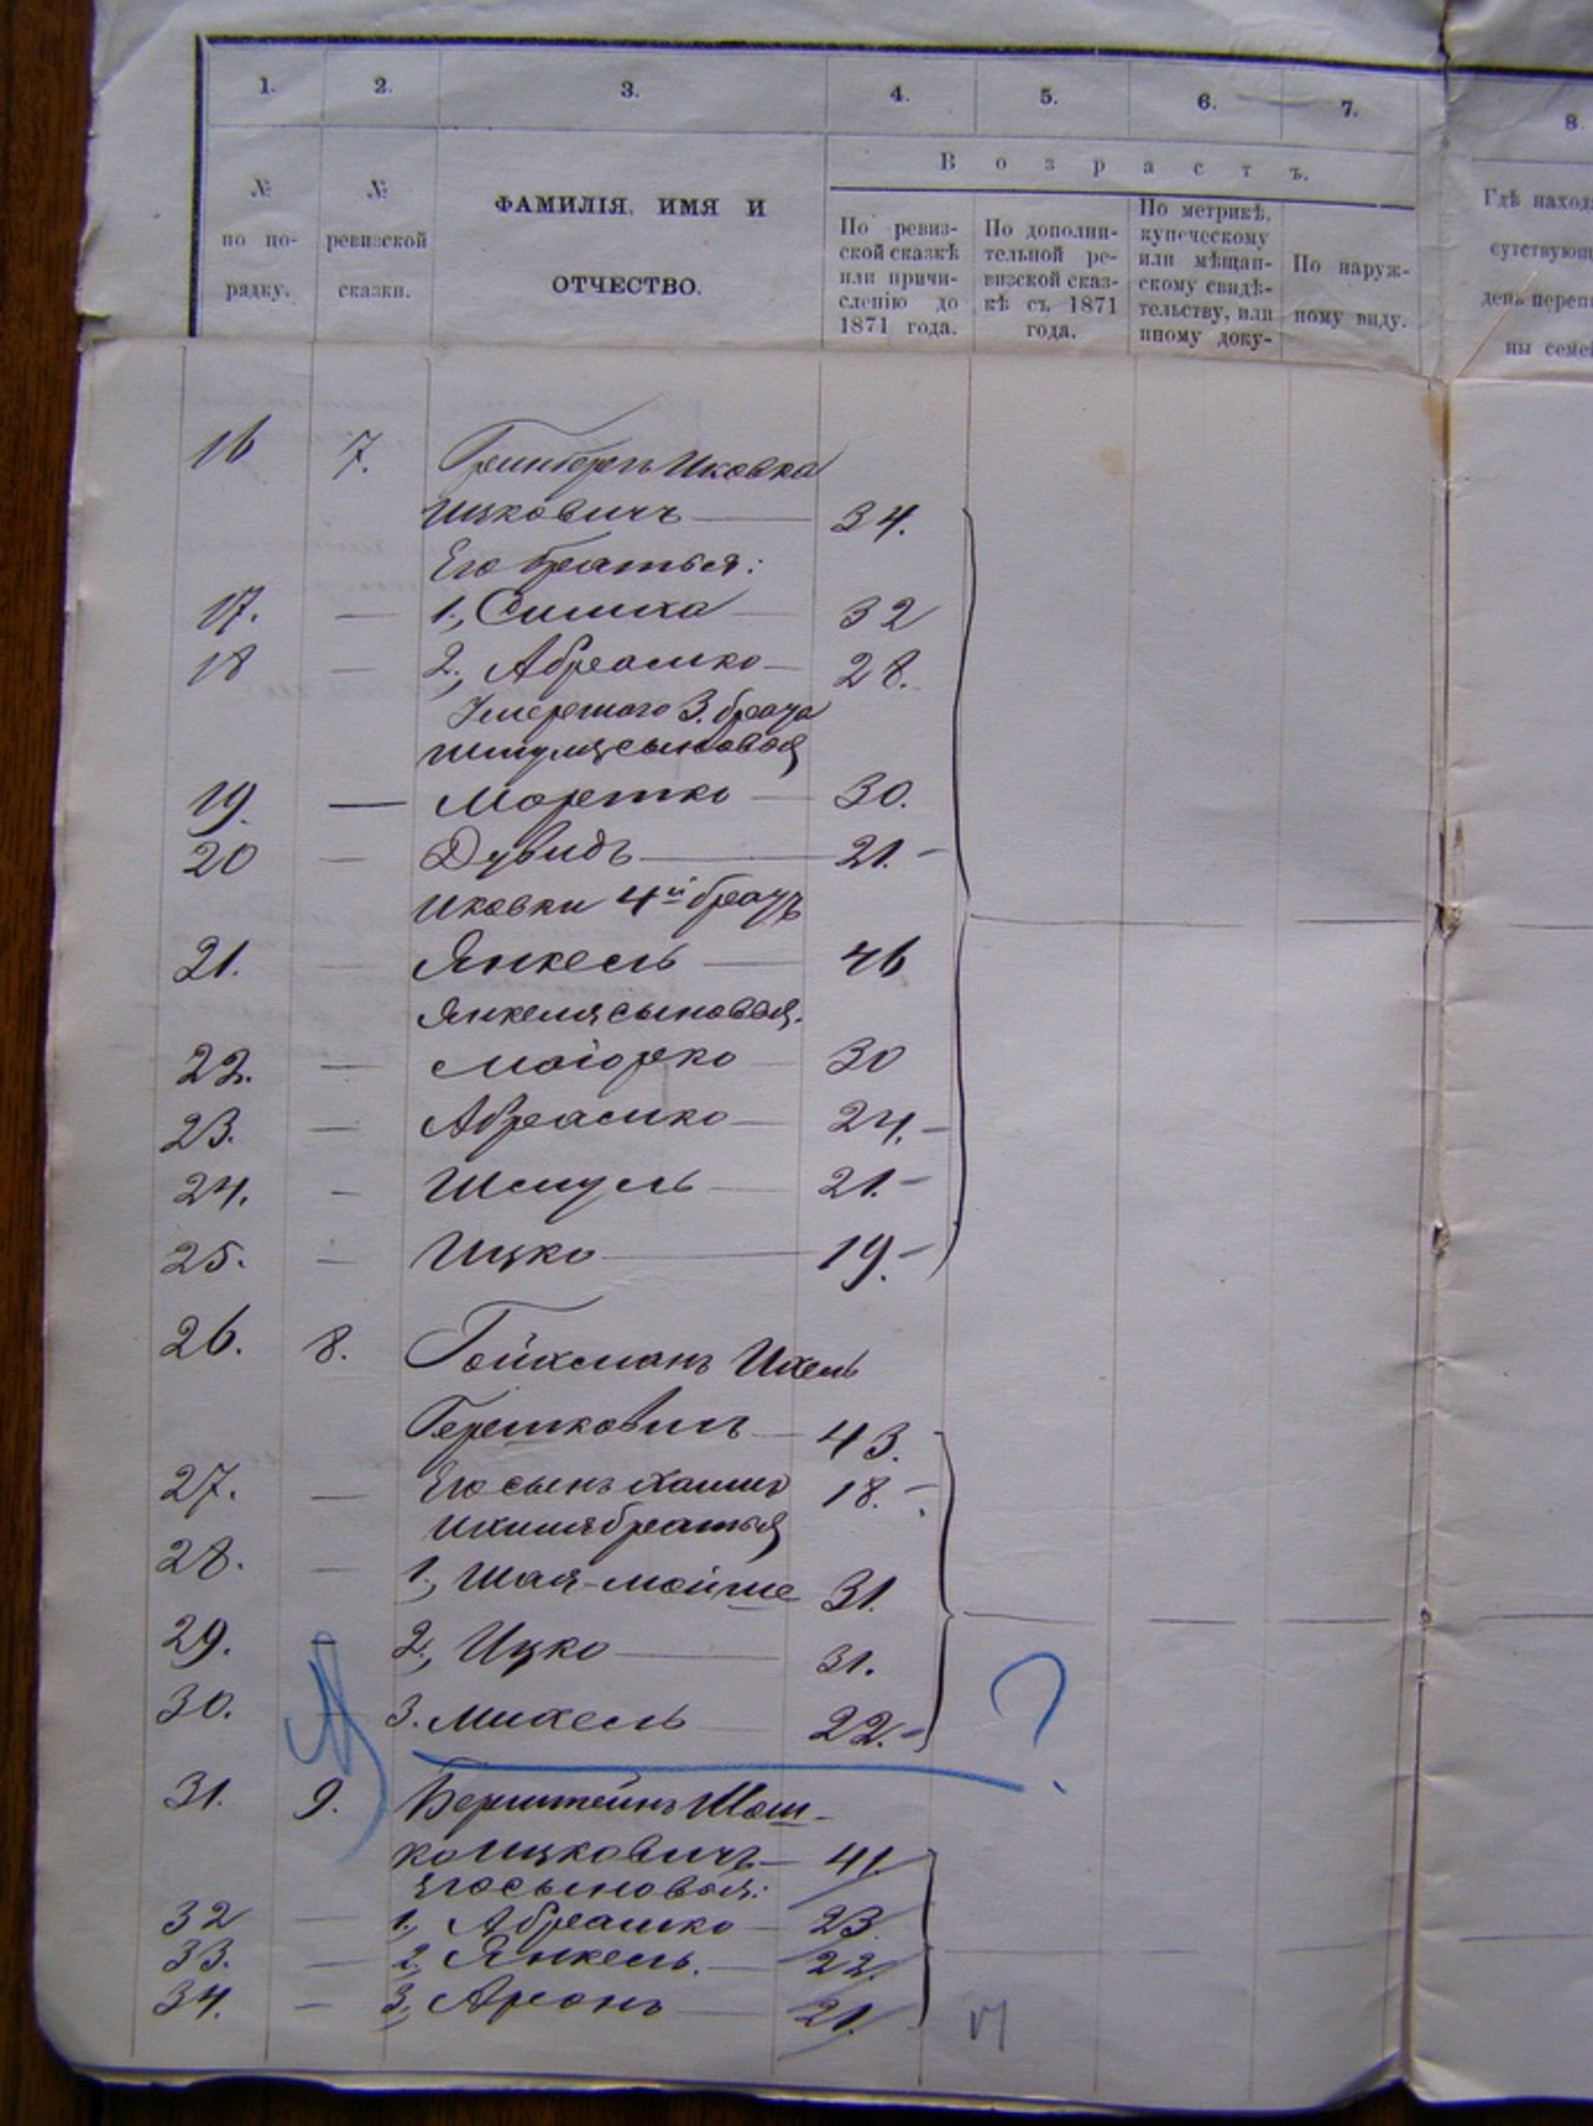 1. 2. 3. 4. 5. 6. 7. 8.
№ по по-рядку.
№ ревизской сказки.
ФАМИЛІЯ, ИМЯ И
ОТЧЕСТВО.
Возрастъ.
По ревиз-
ской сказкѣ
или причи-
сленію до
1871 года.
По дополни-
тельной ре-
визской сказ-
кѣ съ 1871
года.
По метрикѣ,
купеческому
или мѣщан-
скому свидѣ-
тельству, или
иному доку-
По наруж-
ному виду.
Гдѣ наход
сутствующ
день переп
ны семе
16 7. Гринбергъ Иковка
Ицковичъ — 34.
Его братья:
17. — 1., Симха — 32
18 — 2., Абрамко — 28.
Умершаго 3. брата
Шмуля сыновья
19. — Моретко — 30.
20 — Дувидъ — 21.-
Иковки 4й братъ
21. — Янкель — 46
Янкеля сыновья.
22. — Маiорко — 30
23. — Абрамко — 24.-
24. — Шмуль — 21.-
25. — Ицко — 19.-
26. 8. Гойхманъ Ихель
Гершковичъ — 43.
27. — Его сынъ Хаимъ 18.-
Ихиля братья
28. — 1., Шая-Мойше 31.
29. — 2., Ицко — 31.
30. 3. Михель — 22.-
?
31. 9. Бернштейнъ Мош-
ко Ицковичъ — 41
Его сыновья:
32 — 1., Абрамко — 23.
33. — 2., Янкель. — 22.
34. — 3., Аронъ — 21.